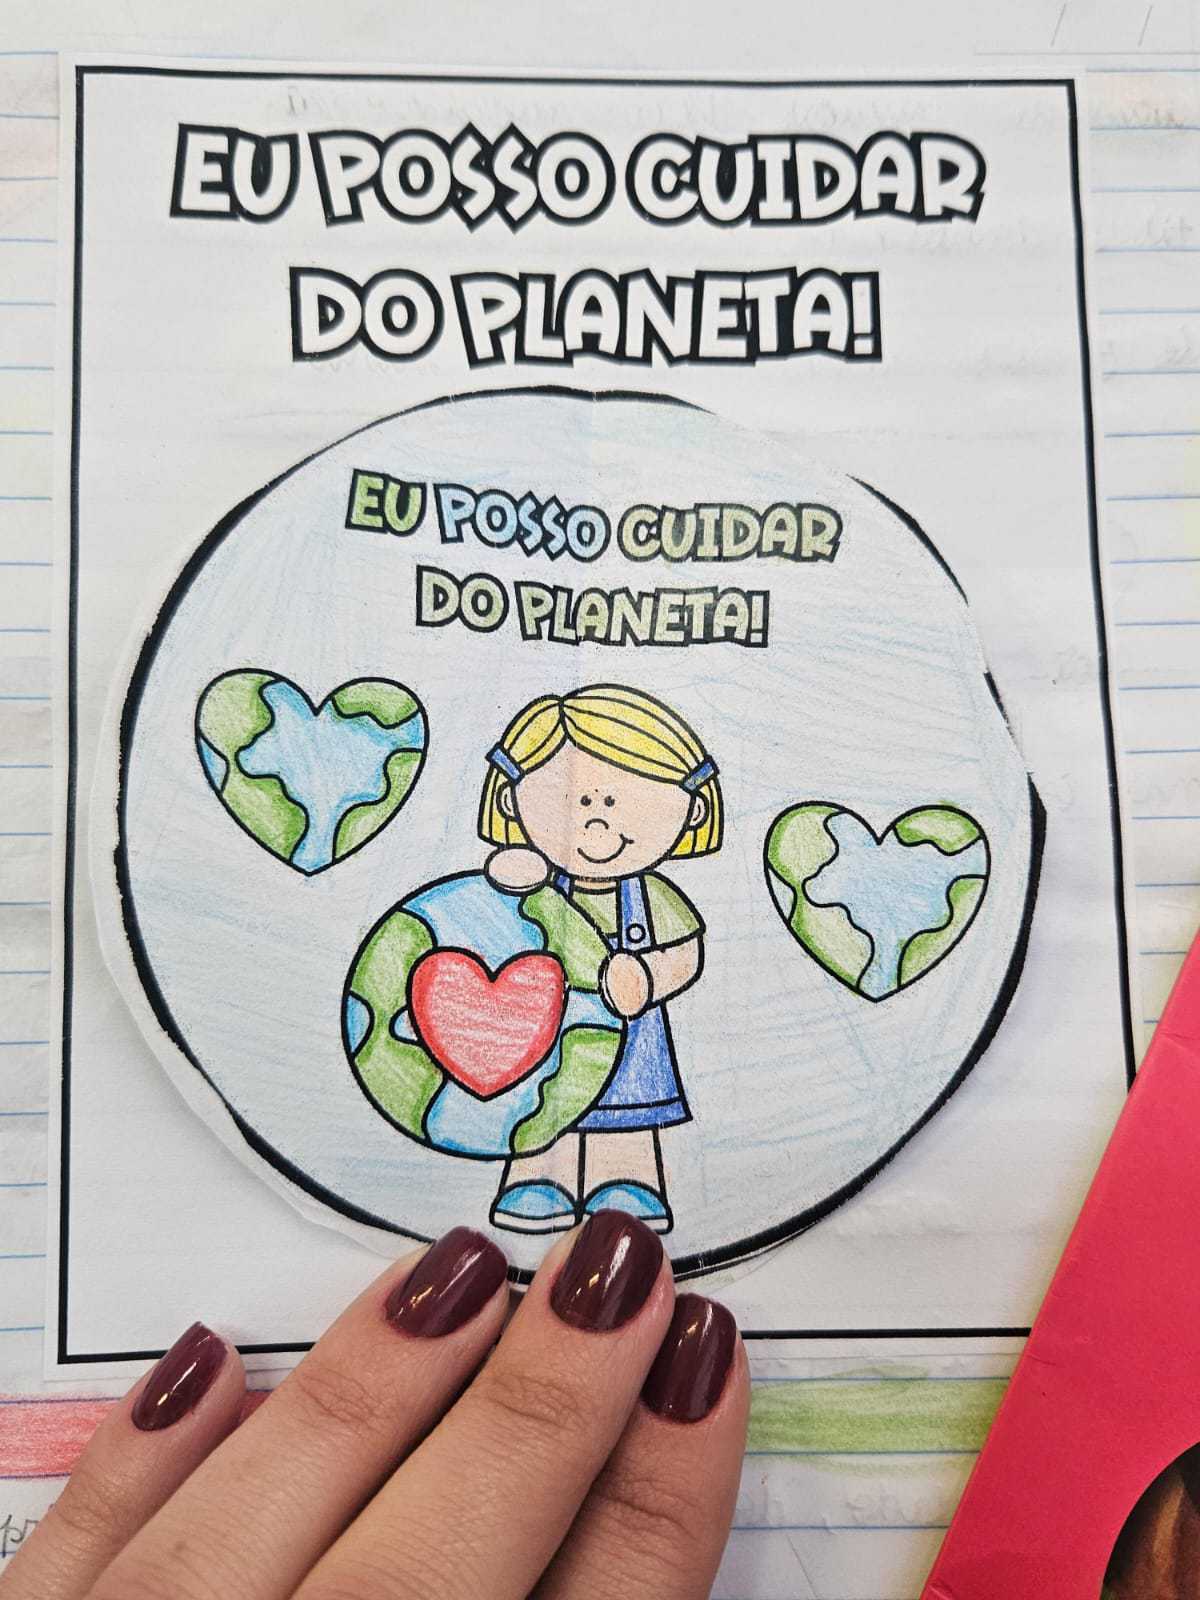 EU POSSO CUIDAR
DO PLANETA!
EU POSSO CUIDAR
DO PLANETA!